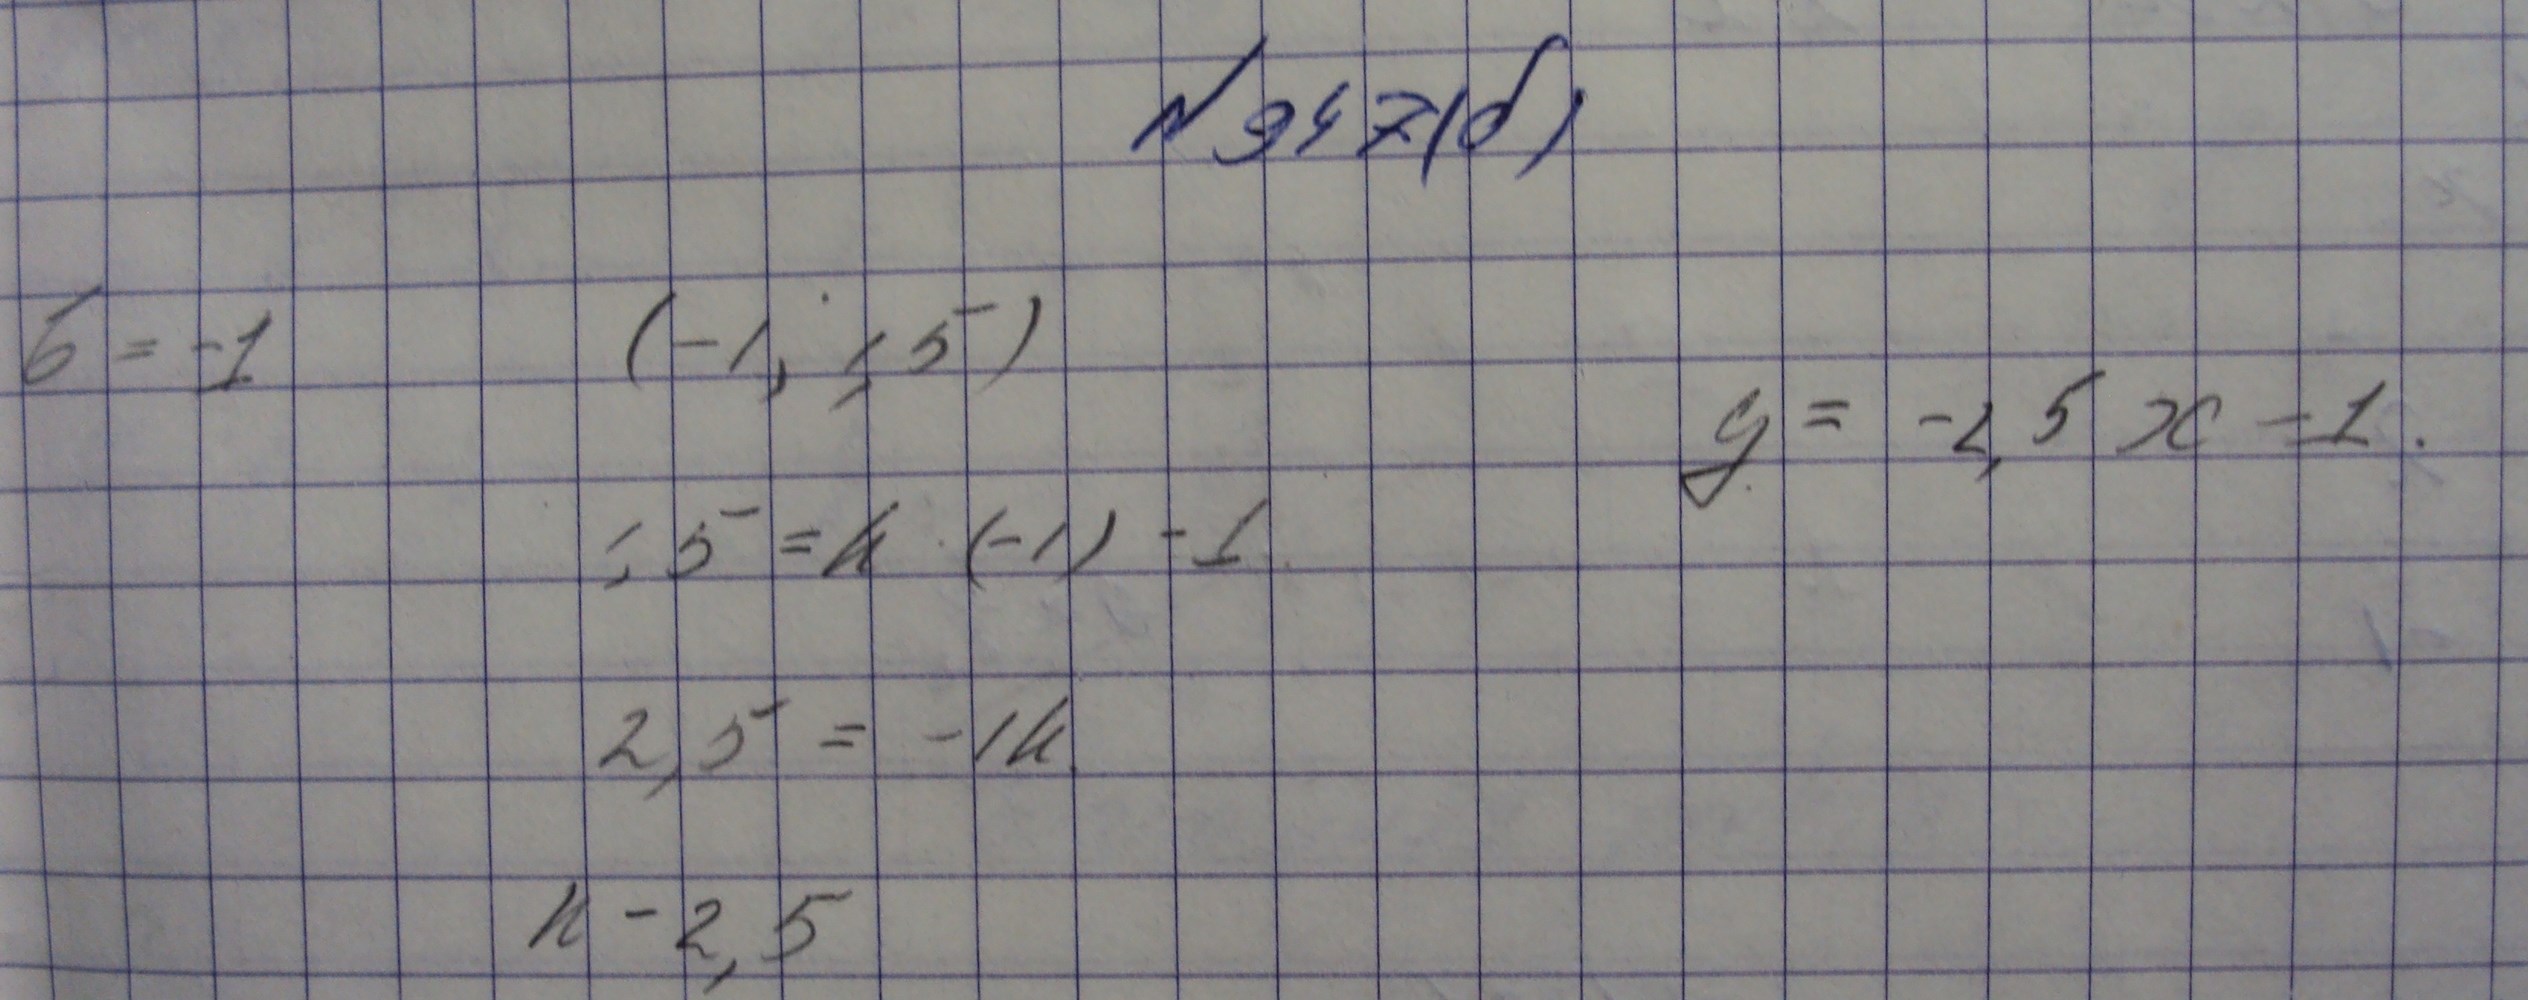 №947(б)
б = -1
(-1, 1,5)
y = -2,5 x - 1.
1,5 = k · (-1) - 1
2,5 = -1k
k - 2,5